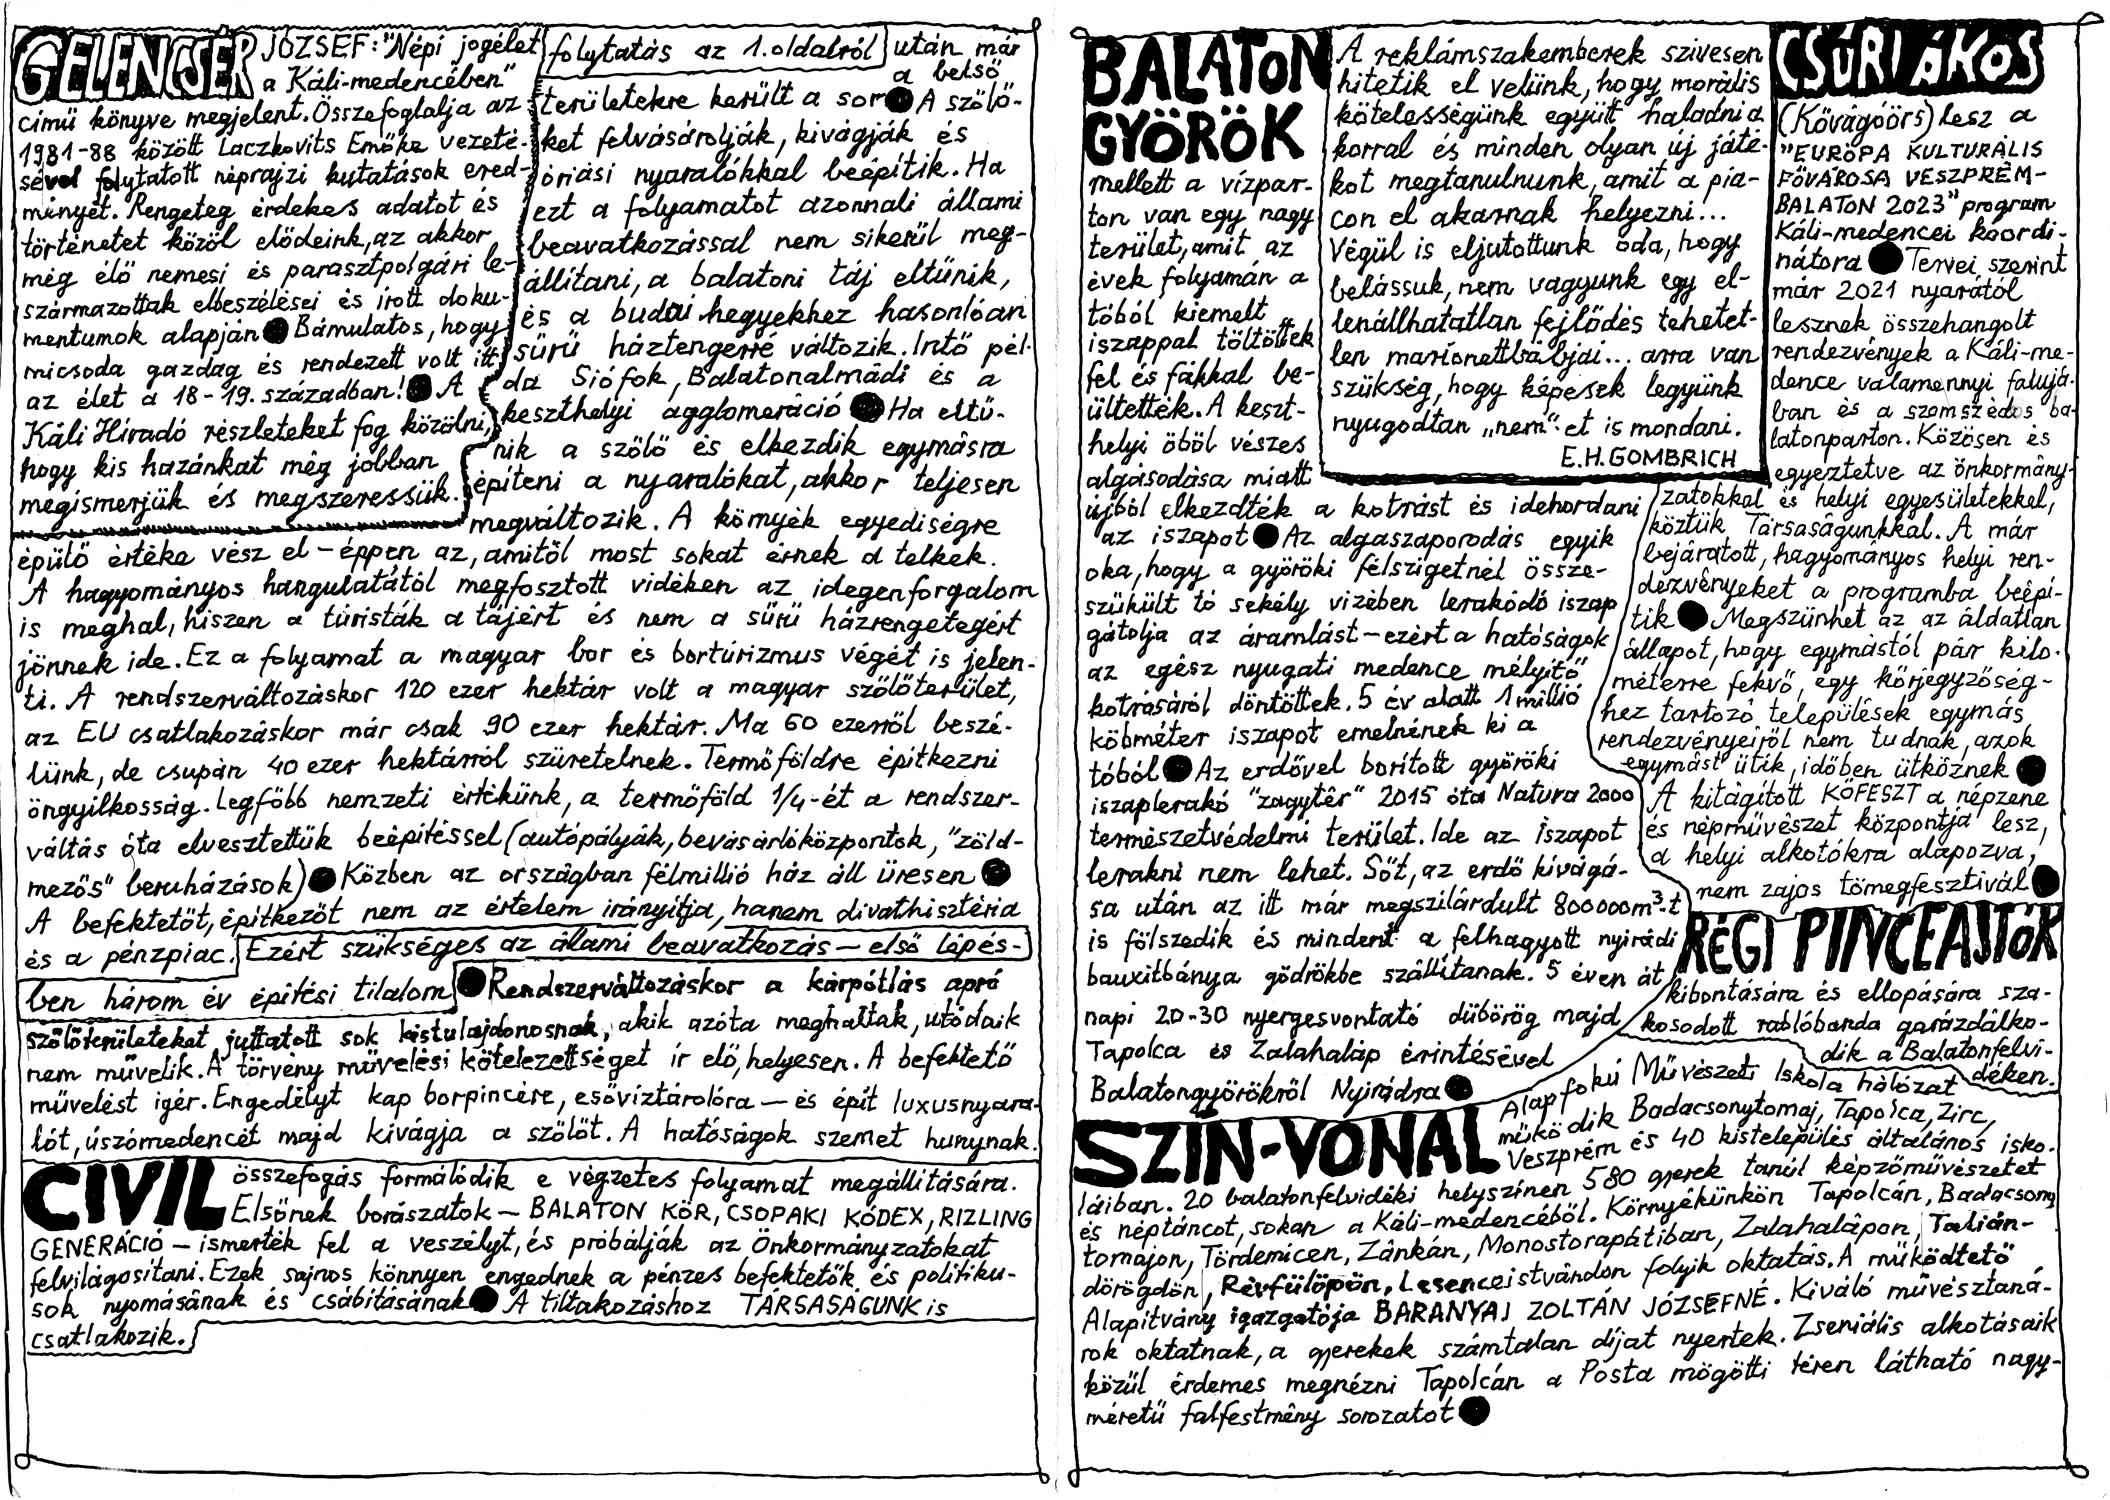 GELENCSÉR JÓZSEF: "Népi jogélet
a Káli-medencében"
című könyve megjelent. Összefoglalja az
1981-88 között Laczkovits Emőke vezeté-
sével folytatott néprajzi kutatások ered-
ményét. Rengeteg érdekes adatot és
történetet közöl elődeink, az akkor
még élő nemesi és parasztpolgári le-
származottak elbeszélései és írott doku-
mentumok alapján ● Bámulatos, hogy
micsoda gazdag és rendezett volt itt
az élet a 18-19. században! ● A
Káli Híradó részleteket fog közölni,
hogy kis hazánkat még jobban
megismerjük és megszeressük.
folytatás az 1. oldalról után már
a belső
területekre került a sor ● A szőlő-
ket felvásárolják, kivágják és
óriási nyaralókkal beépítik. Ha
ezt a folyamatot azonnali állami
beavatkozással nem sikerül meg-
állítani, a balatoni táj eltűnik,
és a budai hegyekhez hasonlóan
sűrű háztengerré változik. Intő pél-
da Siófok, Balatonalmádi és a
keszthelyi agglomeráció ● Ha eltű-
nik a szőlő és elkezdik egymásra
építeni a nyaralókat, akkor teljesen
megváltozik. A környék egyediségre
épülő értéke vész el - éppen az, amitől most sokat érnek a telkek.
A hagyományos hangulatától megfosztott vidéken az idegenforgalom
is meghal, hiszen a turisták a tájért és nem a sűrű házrengetegért
jönnek ide. Ez a folyamat a magyar bor és borturizmus végét is jelen-
ti. A rendszerváltozáskor 120 ezer hektár volt a magyar szőlőterület,
az EU csatlakozáskor már csak 90 ezer hektár. Ma 60 ezerről beszé-
lünk, de csupán 40 ezer hektárról szüretelnek. Termőföldre építkezni
öngyilkosság. Legfőbb nemzeti értékünk, a termőföld 1/4-ét a rendszer-
váltás óta elvesztettük beépítéssel (autópályák, bevásárlóközpontok, "zöld-
mezős" beruházások) ● Közben az országban félmillió ház áll üresen ●
A befektetőt, építkezőt nem az értelem irányítja, hanem divathisztéria
és a pénzpiac. Ezért szükséges az állami beavatkozás - első lépés-
ben három év építési tilalom ● Rendszerváltozáskor a kárpótlás apró
szőlőterületeket juttatott sok kistulajdonosnak, akik azóta meghaltak, utódaik
nem művelik. A törvény művelési kötelezettséget ír elő, helyesen. A befektető
művelést ígér. Engedélyt kap borpincére, esővíztárolóra - és épít luxusnyara-
lót, úszómedencét majd kivágja a szőlőt. A hatóságok szemet hunynak.
CIVIL összefogás formálódik e végzetes folyamat megállítására.
Elsőnek borászatok - BALATON KÖR, CSOPAKI KÓDEX, RIZLING
GENERÁCIÓ - ismerték fel a veszélyt, és próbálják az Önkormányzatokat
felvilágosítani. Ezek sajnos könnyen engednek a pénzes befektetők és politiku-
sok nyomásának és csábításának ● A tiltakozáshoz TÁRSASÁGUNK is
csatlakozik.
BALATON
GYÖRÖK
mellett a vízpar-
ton van egy nagy
terület, amit az
évek folyamán a
tóból kiemelt
iszappal töltöttek
fel és fákkal be-
ültették. A keszt-
helyi öböl vészes
algásodása miatt
újból elkezdték a kotrást és idehordani
az iszapot ● Az algaszaporodás egyik
oka, hogy a györöki félszigetnél össze-
szűkült tó sekély vizében lerakódó iszap
gátolja az áramlást - ezért a hatóságok
az egész nyugati medence mélyítő
kotrásáról döntöttek. 5 év alatt 1 millió
köbméter iszapot emelnének ki a
tóból ● Az erdővel borított györöki
iszaplerakó "zagytér" 2015 óta Natura 2000
természetvédelmi terület. Ide az iszapot
lerakni nem lehet. Sőt, az erdő kivágá-
sa után az itt már megszilárdult 800000m³-t
is fölszedik és mindent a felhagyott nyirádi
bauxitbánya gödrökbe szállítanak. 5 éven át
napi 20-30 nyergesvontató dübörög majd
Tapolca és Zalahaláp érintésével
Balatongyörökről Nyirádra ●
A reklámszakemberek szívesen
hitetik el velünk, hogy morális
kötelességünk együtt haladni a
korral és minden olyan új játé-
kot megtanulnunk, amit a pia-
con el akarnak helyezni...
Végül is eljutottunk oda, hogy
belássuk, nem vagyunk egy el-
lenállhatatlan fejlődés tehetet-
len marionettbábjai... arra van
szükség, hogy képesek legyünk
nyugodtan „nem"-et is mondani.
E.H. GOMBRICH
CSŰRI ÁKOS
(Kővágóörs) lesz a
"EURÓPA KULTURÁLIS
FŐVÁROSA VESZPRÉM-
BALATON 2023" program
Káli-medencei koordi-
nátora ● Tervei szerint
már 2021 nyarától
lesznek összehangolt
rendezvények a Káli-me-
dence valamennyi falujá-
ban és a szomszédos ba-
latonparton. Közösen és
egyeztetve az önkormány-
zatokkal és helyi egyesületekkel,
köztük Társaságunkkal. A már
bejáratott, hagyományos helyi ren-
dezvényeket a programba beépí-
tik ● Megszűnhet az az áldatlan
állapot, hogy egymástól pár kilo-
méterre fekvő, egy körjegyzőség-
hez tartozó települések egymás
rendezvényeiről nem tudnak, azok
egymást ütik, időben ütköznek ●
A kitágított KŐFESZT a népzene
és népművészet központja lesz,
a helyi alkotókra alapozva,
nem zajos tömegfesztivál ●
RÉGI PINCEAJTÓK
kibontására és ellopására sza-
kosodott rablóbanda garázdálko-
dik a Balatonfelvi-
déken.
SZÍN-VONAL Alapfokú Művészeti Iskola hálózat
működik Badacsonytomaj, Tapolca, Zirc,
Veszprém és 40 kistelepülés általános isko-
láiban. 20 balatonfelvidéki helyszínen 580 gyerek tanul képzőművészetet
és néptáncot, sokan a Káli-medencéből. Környékünkön Tapolcán, Badacsony
tomajon, Tördemicen, Zánkán, Monostorapátiban, Zalahalápon, Talián-
dörögdön, Révfülöpön, Lesenceistvándon folyik oktatás. A működtető
Alapítvány igazgatója BARANYAI ZOLTÁN JÓZSEFNÉ. Kiváló művésztaná-
rok oktatnak, a gyerekek számtalan díjat nyertek. Zseniális alkotásaik
közül érdemes megnézni Tapolcán a Posta mögötti téren látható nagy-
méretű falfestmény sorozatot ●